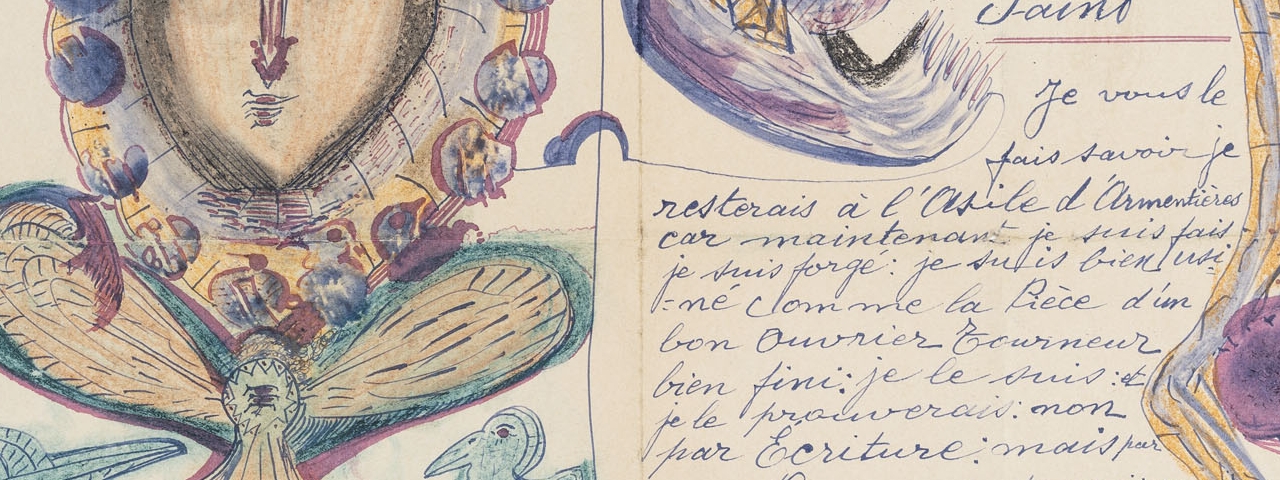 Saint
Je vous le
fais savoir je
resterais à l'Asile d'Armentières
car maintenant je suis fais
je suis forgé: je suis bien usi-
-né comme la Pièce d'un
bon Ouvrier Tourneur
bien fini: je le suis: et
je le prouverais: non
par Ecriture: mais par